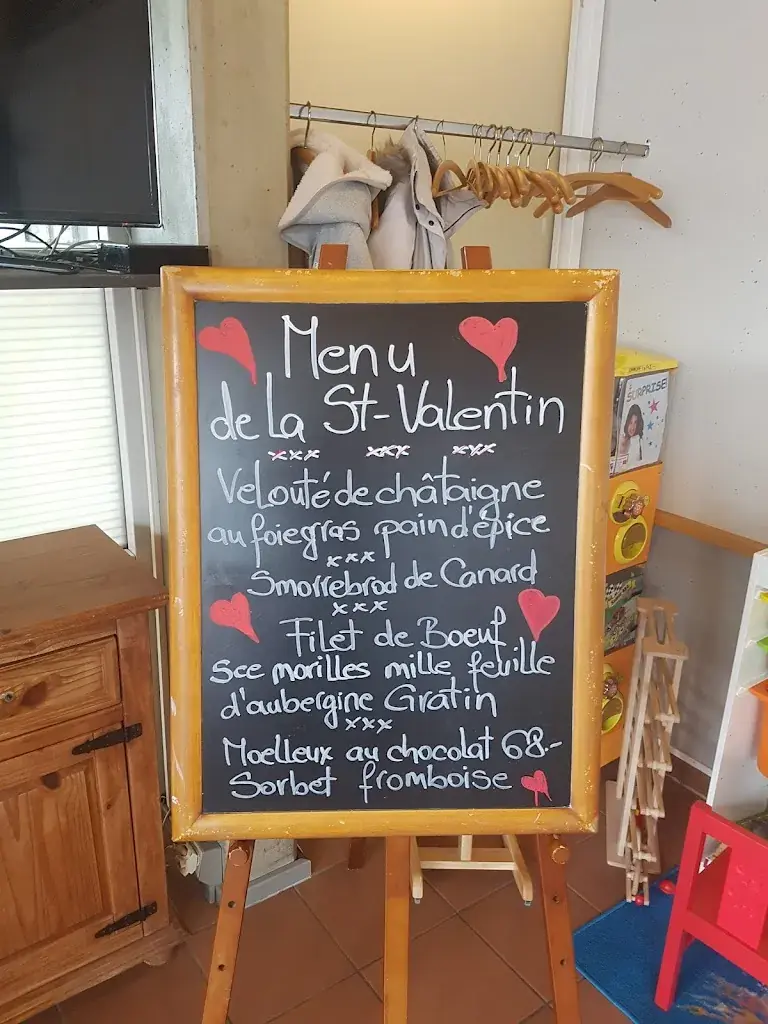 Menu
de la St-Valentin
xxx xxx xxx
Velouté de châtaigne
au foie gras pain d'épice
xxx
Smorrebrod de Canard
xxx
Filet de Boeuf
Sce morilles mille feuille
d'aubergine Gratin
xxx
Moelleux au chocolat 68.-
Sorbet fromboise
SURPRISE